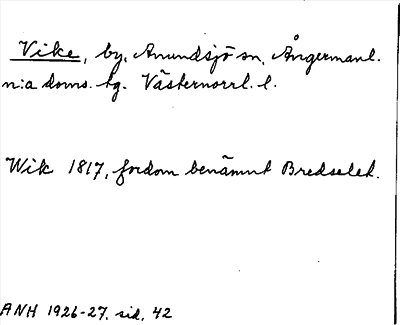 Vike, by, Anundsjö sn, Ångermanl.
n:a doms. tg. Västernorrl. l.
Wik 1817, fordom benämnt Bredselet.
ANH 1926-27, sid. 42